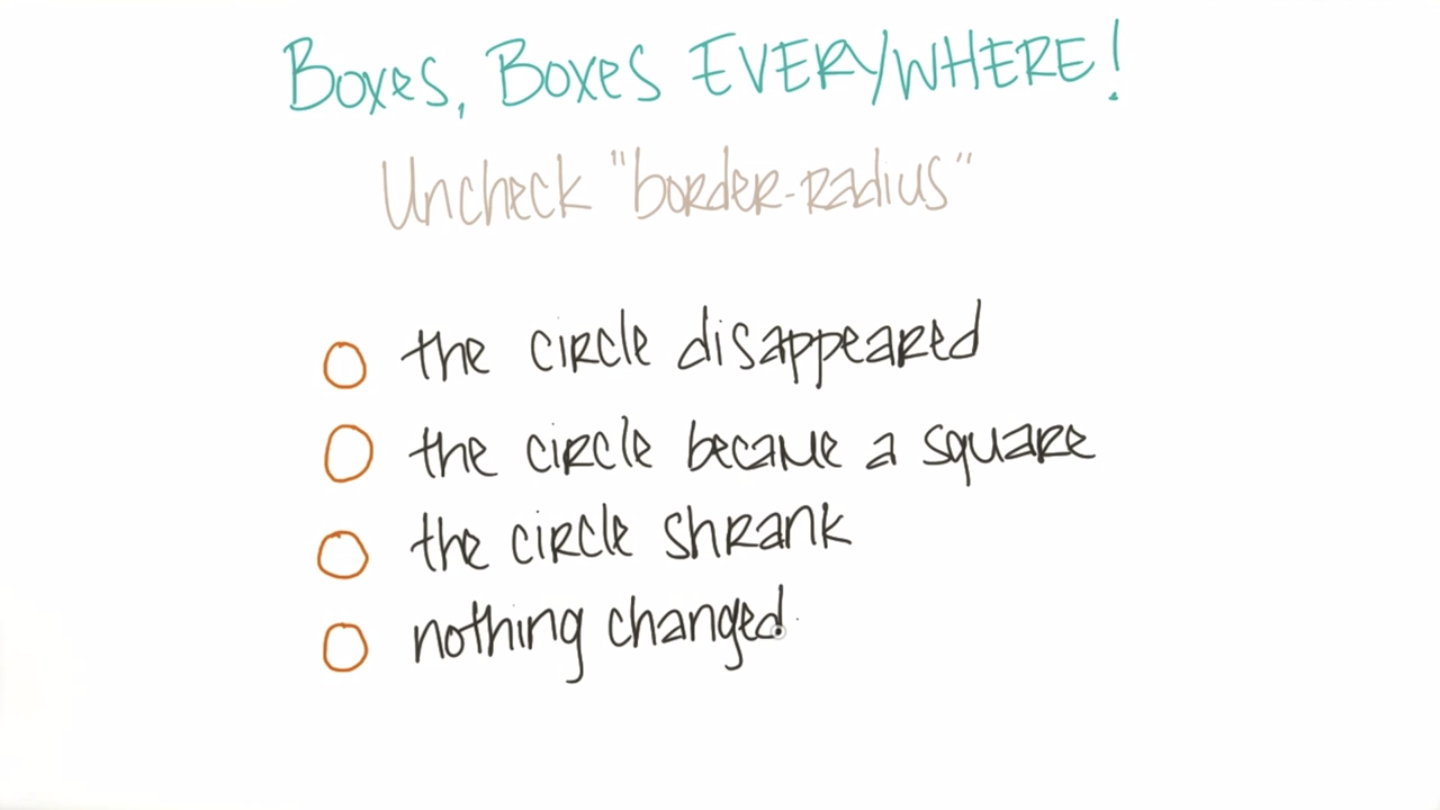 Boxes, Boxes EVERYWHERE!
Uncheck "border-radius"
the circle disappeared
the circle became a square
the circle shrank
nothing changed